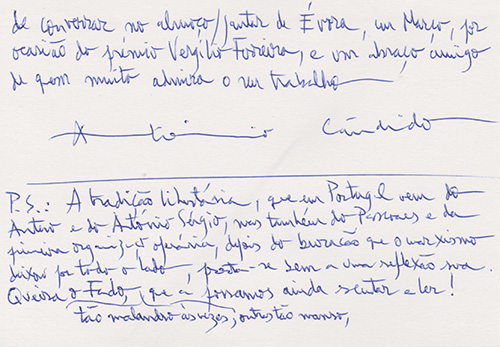 de conversar no almoço/jantar de Évora, em Março, por
ocasião do prémio Vergílio Ferreira, e um abraço amigo
de quem muito admira o seu trabalho
António Cândido
P.S.: A tradição libertária, que em Portugal vem do
Antero e do António Sérgio, mas também do Pascoaes e da
primeira organiz-ç-o operária, depois do buracão que o marxismo
deixou por todo o lado, presta-se bem a uma reflexão sua.
Queira o Fado, que a possamos ainda escutar e ler!
tão malandro às vezes, outras tão manso,